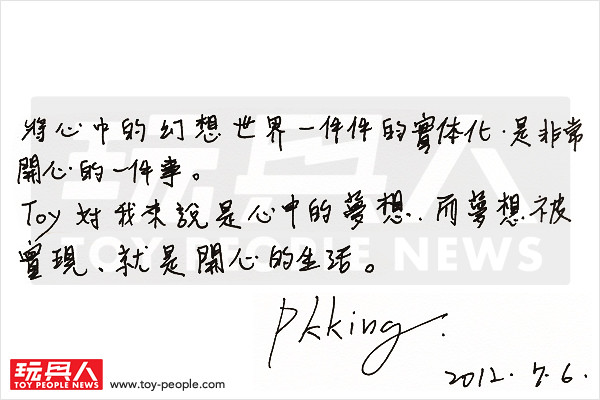 將心中的幻想世界一件件的實体化.是非常
開心的一件事。
Toy 對我來說是心中的夢想.而夢想被
實現、就是開心的生活。
Pkking.
2012.7.6.
玩具人
TOY PEOPLE NEWS
玩具人
TOY PEOPLE NEWS
www.toy-people.com